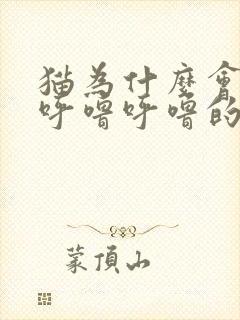 貓為什麼會
呼嚕呼嚕的
蒙頂山